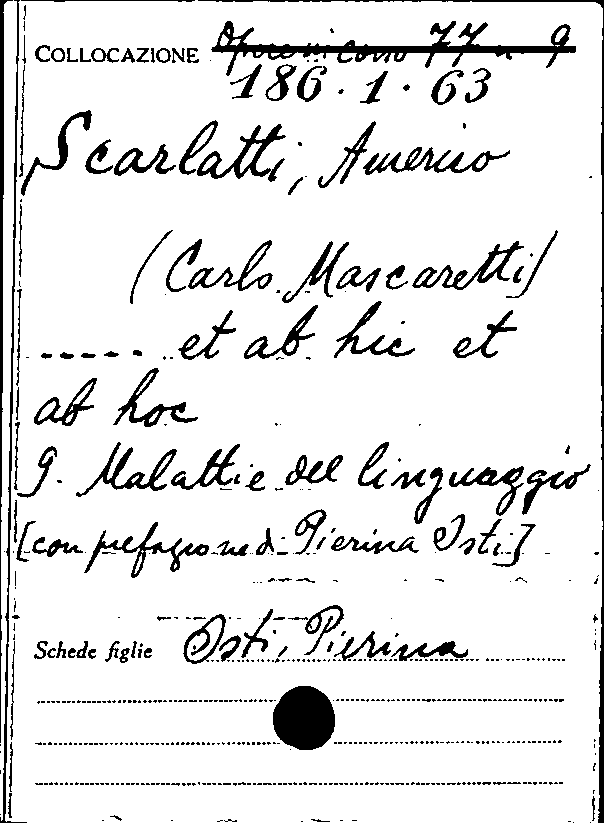 COLLOCAZIONE Opere in corso 77 n 9
186.1.63
Scarlatti, Amerigo
(Carlo Mascaretti)
..... et ab hic et
ab hoc
9. Malattie del linguaggio
[con prefazione di Pierina Osti]
Schede figlie Osti, Pierina